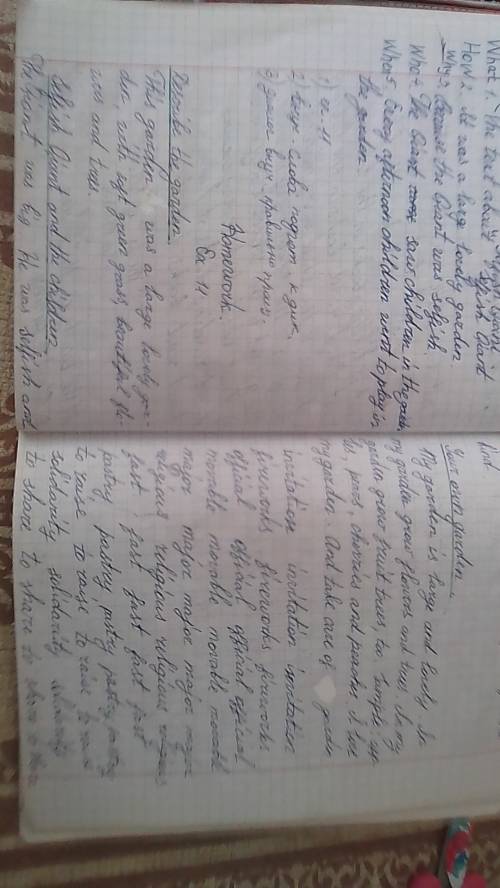 What?. The text about "
How? It was a large lovely garden
Why? Because the Giant was selfish
Who? The Giant saw children in the
What?. Every afternoon children went to play in
the garden.
1)
2)
3)
Homework.
Ex. 11
Describe the garden.
This garden was a large lovely gar-
den with soft green grass, beautiful flo-
wers and trees.
Selfish Giant and the children.
The Giant was big. He was selfish and
kind.
Your own garden.
My garden is large and lovely. In
my garden grow flowers and trees. In my
garden grow fruit trees, ap-
les, pears, cherries and peaches. I love
my garden. And take care of garden
invitation invitation invitation
fireworks fireworks fireworks
official official official
movable movable movable
major major major major
religious religious religious
fast fast fast fast
pastry pastry, pastry pastry, pastry
to raise to raise to raise to raise
solidarity solidarity solidarity
to share to share to share to share